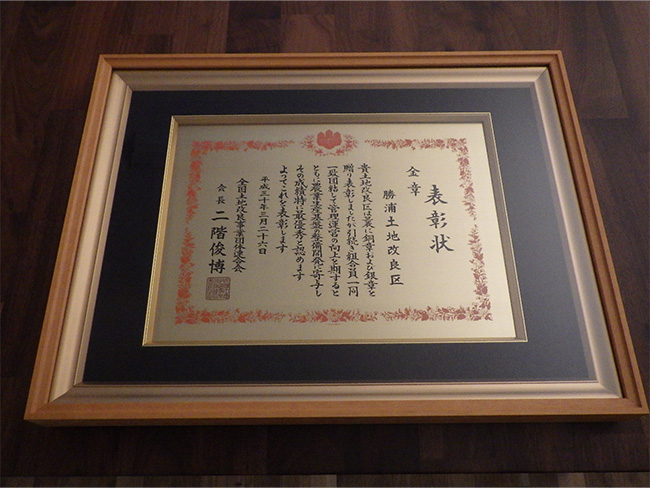 表彰状
金章
勝浦土地改良区
貴土地改良区は曩に銅章および銀章を
贈り表彰しましたが引続き組合員一同
一致団結して管理運営の向上を期すると
ともに農業生産基盤の整備開発に寄与し
その成績特に最優秀と認めます
よつてこれを表彰します
平成三十年三月二十六日
全国土地改良事業団体連合会
会長 二階俊博